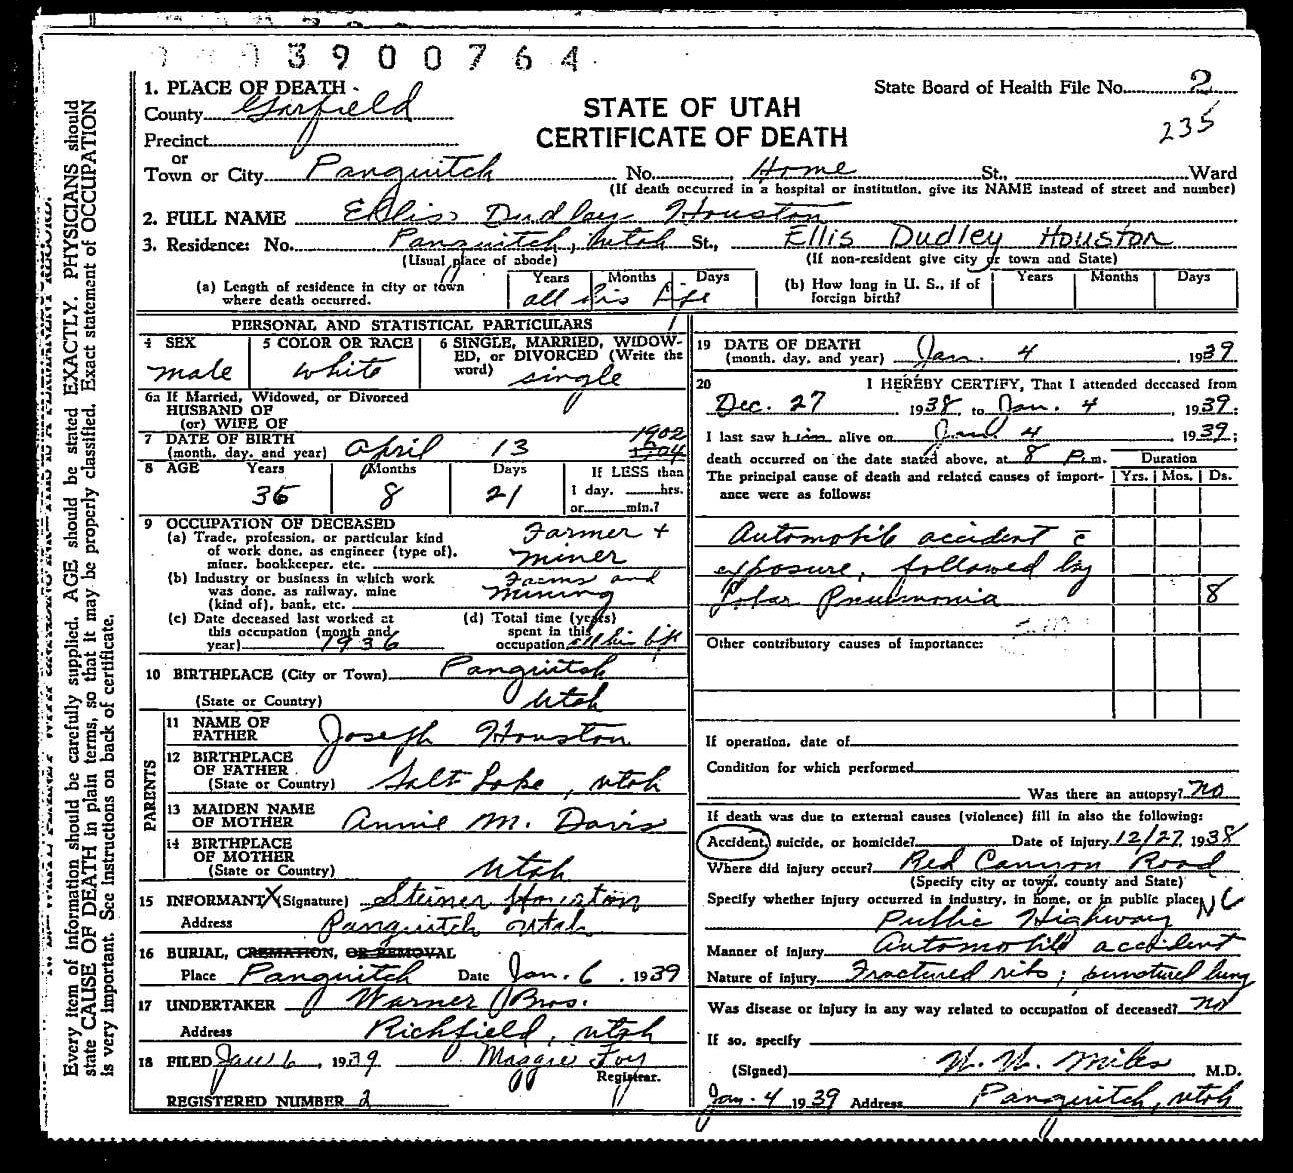 3900764
1. PLACE OF DEATH - State Board of Health File No. 2
County Garfield STATE OF UTAH 235
Precinct CERTIFICATE OF DEATH
or
Town or City Panguitch No. , Home St., Ward
(If death occurred in a hospital or institution, give its NAME instead of street and number)
2. FULL NAME Ellis Dudley Houston
3. Residence: No. Panguitch, Utah St., Ellis Dudley Houston
(Usual place of abode) (If non-resident give city or town and State)
(a) Length of residence in city or town where death occurred. Years Months Days all his life
(b) How long in U. S., if of foreign birth? Years Months Days
PERSONAL AND STATISTICAL PARTICULARS
4 SEX male
5 COLOR OR RACE white
6 SINGLE, MARRIED, WIDOWED, or DIVORCED (Write the word) single
6a If Married, Widowed, or Divorced
HUSBAND OF
(or) WIFE OF
7 DATE OF BIRTH (month, day, and year) April 13 1902 1904
8 AGE Years 36 Months 8 Days 21 If LESS than 1 day, hrs. or min.?
9 OCCUPATION OF DECEASED
(a) Trade, profession, or particular kind of work done, as engineer (type of), miner, bookkeeper, etc. Farmer + miner
(b) Industry or business in which work was done, as railway, mine (kind of), bank, etc. Farms and mining
(c) Date deceased last worked at this occupation (month and year) 1936
(d) Total time (years) spent in this occupation all his life
10 BIRTHPLACE (City or Town) Panguitch
(State or Country) Utah
PARENTS
11 NAME OF FATHER Joseph Houston
12 BIRTHPLACE OF FATHER (State or Country) Salt Lake, Utah
13 MAIDEN NAME OF MOTHER Annie M. Davis
14 BIRTHPLACE OF MOTHER (State or Country) Utah
15 INFORMANT X (Signature) Steiner Houston
Address Panguitch Utah
16 BURIAL, CREMATION, OR REMOVAL
Place Panguitch Date Jan. 6, 1939
17 UNDERTAKER Warner Bros.
Address Richfield, Utah
18 FILED Jan 6, 1939 Maggie Foy
Registrar.
REGISTERED NUMBER 2
19 DATE OF DEATH (month, day, and year) Jan. 4 1939
20 I HEREBY CERTIFY, That I attended deceased from
Dec. 27 1938, to Jan. 4, 1939;
I last saw him alive on Jan 4, 1939;
death occurred on the date stated above, at 8 P.m. Duration
The principal cause of death and related causes of importance were as follows: Yrs. Mos. Ds.
Automobile accident c̄
exposure, followed by
Lobar Pneumonia 8
Other contributory causes of importance:
If operation, date of
Condition for which performed
Was there an autopsy? no
If death was due to external causes (violence) fill in also the following:
Accident, suicide, or homicide? Date of injury 12/27, 1938
Where did injury occur? Red Canyon Road
(Specify city or town, county and State)
Specify whether injury occurred in industry, in home, or in public place
Public Highway
Manner of injury Automobile accident
Nature of injury Fractured ribs; punctured lung
Was disease or injury in any way related to occupation of deceased? no
If so, specify
(Signed) W. W. Miles, M.D.
Jan. 4 1939 Address Panguitch, Utah
Every item of information should be carefully supplied. AGE should be stated EXACTLY. PHYSICIANS should
state CAUSE OF DEATH in plain terms, so that it may be properly classified. Exact statement of OCCUPATION
is very important. See instructions on back of certificate.